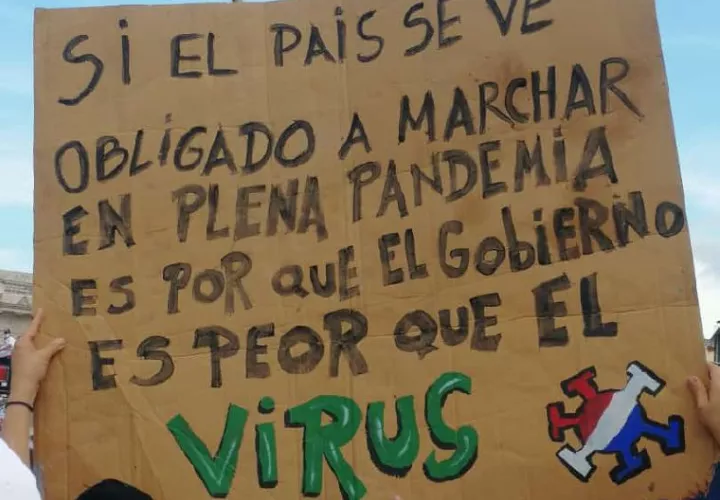 SI EL PAIS SE VE
OBLIGADO A MARCHAR
EN PLENA PANDEMIA
ES POR QUE EL GOBIERNO
ES PEOR QUE EL
VIRUS